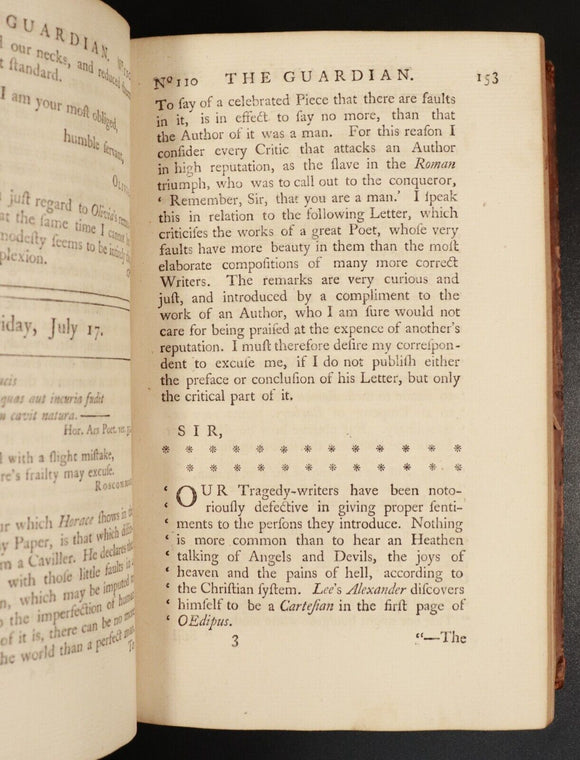 GUARDIAN.
our necks, and reduced
ſtandard.
I am your moſt obliged,
humble ſervant,
juſt regard to
at the ſame time I cannot
modeſty ſeems to be
plexion.
iday, July 17.
quas aut incuria fudit
cavit natura. ——
Hor. Ars Poet. ver.
with a ſlight miſtake,
re's frailty may excuſe.
ur which Horace ſhows in
y Paper, is that which
m a Caviller. He declares
with thoſe little faults
n, which may be imputed
o the imperfection of
of it is, there can be no more
he world than a perfect
To
No 110 THE GUARDIAN. 153
To ſay of a celebrated Piece that there are faults
in it, is in effect to ſay no more, than that
the Author of it was a man. For this reaſon I
conſider every Critic that attacks an Author
in high reputation, as the ſlave in the Roman
triumph, who was to call out to the conqueror,
‘ Remember, Sir, that you are a man.’ I ſpeak
this in relation to the following Letter, which
criticiſes the works of a great Poet, whoſe very
faults have more beauty in them than the moſt
elaborate compoſitions of many more correct
Writers. The remarks are very curious and
juſt, and introduced by a compliment to the
work of an Author, who I am ſure would not
care for being praiſed at the expence of another's
reputation. I muſt therefore deſire my correſpon-
dent to excuſe me, if I do not publiſh either
the preface or concluſion of his Letter, but only
the critical part of it.
SIR,
* * * * * * * * * * * * *
* * * * * * * * * * * *
‘ OUR Tragedy-writers have been noto-
‘ riouſly defective in giving proper ſenti-
‘ ments to the perſons they introduce. Nothing
‘ is more common than to hear an Heathen
‘ talking of Angels and Devils, the joys of
‘ heaven and the pains of hell, according to
‘ the Chriſtian ſyſtem. Lee's Alexander diſcovers
‘ himſelf to be a Carteſian in the firſt page of
‘ OEdipus.
3 “—The